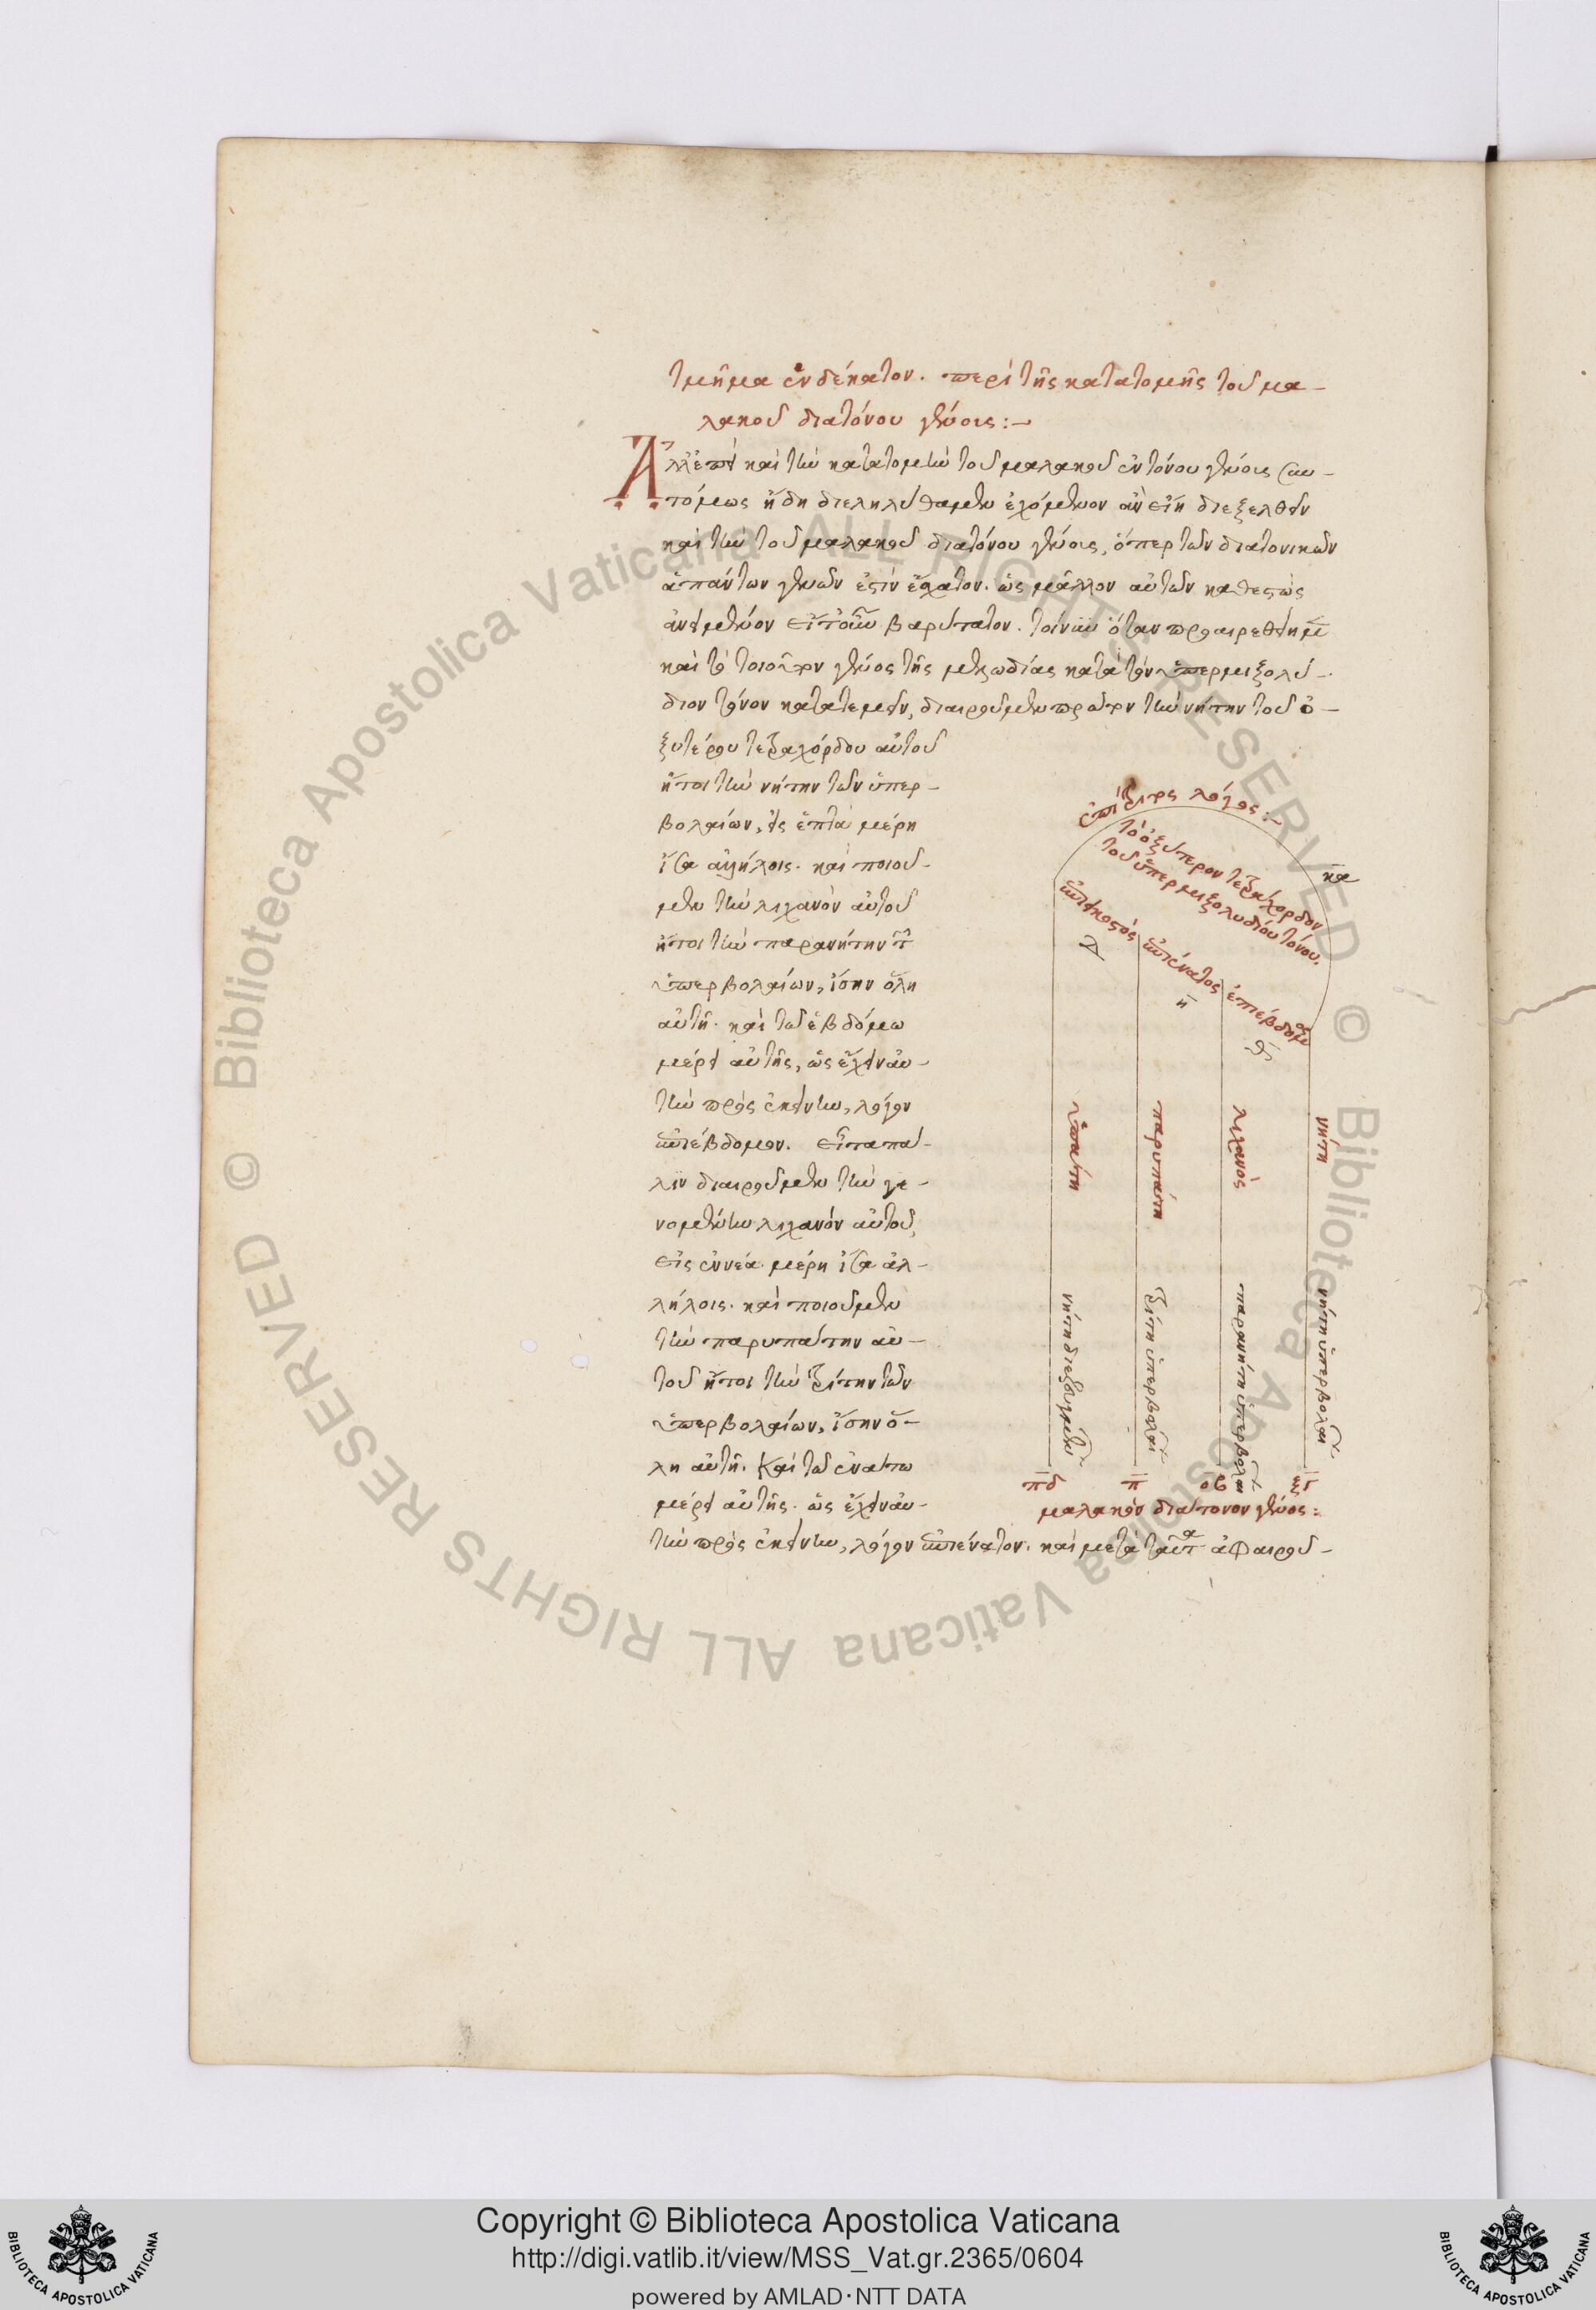 τμῆμα ἑνδέκατον. περὶ τῆς κατατομῆς τοῦ μα-
λακοῦ διατόνου γένους:-
Ἀλλ' ἐπεὶ καὶ τὴν κατατομὴν τοῦ μαλακοῦ ἐντόνου γένους συν-
τόμως ἤδη διεληλύθαμεν ἐχόμενον ἂν εἴη διεξελθεῖν
καὶ τὴν τοῦ μαλακοῦ διατόνου γένους, ὅπερ τῶν διατονικῶν
ἁπάντων γενῶν ἐστὶν ἔσχατον. ὡς μᾶλλον αὐτῶν καθεστὼς
ἀνειμένον εἴτουν βαρύτατον. τοίνυν ὅταν προαιρεθείημεν
καὶ τὸ τοιοῦτον γένος τῆς μελῳδίας κατὰ τὸν ὑπερμιξολύ-
διον τόνον κατατεμεῖν, διαιροῦμεν πρῶτον τὴν νήτην τοῦ ὀ-
ξυτέρου τετραχόρδου αὐτοῦ
ἤτοι τὴν νήτην τῶν ὑπερ-
βολαίων, εἰς ἑπτὰ μέρη
ἴσα ἀλλήλοις. καὶ ποιοῦ-
μεν τὴν λιχανὸν αὐτοῦ
ἤτοι τὴν παρανήτην τῶν
ὑπερβολαίων, ἴσην ὅλη
αὐτῇ. καὶ τῶ ἑβδόμω
μέρει αὐτῆς, ὡς ἔχειν αὐ-
τὴν πρὸς ἐκείνην, λόγον
ἐπιέβδομον. εἶτα πά-
λιν διαιροῦμεν τὴν γε-
νομένην λιχανὸν αὐτοῦ,
εἰς ἐννέα μέρη ἴσα ἀλ-
λήλοις. καὶ ποιοῦμεν
τὴν παρυπάτην αὐ-
τοῦ ἤτοι τὴν τρίτην τῶν
ὑπερβολαίων, ἴσην ὅ-
λη αὐτῇ. καὶ τῶ ἐνάτω
μέρει αὐτῆς. ὡς ἔχειν αὐ-
τὴν πρὸς ἐκείνην, λόγον ἐπιένατον. καὶ μετὰ ταῦτα ἀφαιροῦ-
ἐπίτριτος λόγος:-
τὸ ὀξύτερον τετράχορδον
τοῦ ὑπερμιξολυδίου τόνου.
κα
ἐπιεικοστὸς
ἐπιένατος
ἐπιέβδομος
δ
η
θ
ὑπάτη
παρυπάτη
λιχανὸς
νήτη
νήτη διεζευγμένων
τρίτη ὑπερβολαίων
παρανήτη ὑπερβολαίων
νήτη ὑπερβολαίων
πδ
π
οβ
ξγ
μαλακὸν διάτονον γένος:
© Biblioteca Apostolica Vaticana ALL RIGHTS RESERVED
© Biblioteca Apostolica Vaticana ALL RIGHTS RESERVED
Copyright © Biblioteca Apostolica Vaticana
http://digi.vatlib.it/view/MSS_Vat.gr.2365/0604
powered by AMLAD·NTT DATA
BIBLIOTECA APOSTOLICA VATICANA
BIBLIOTECA APOSTOLICA VATICANA